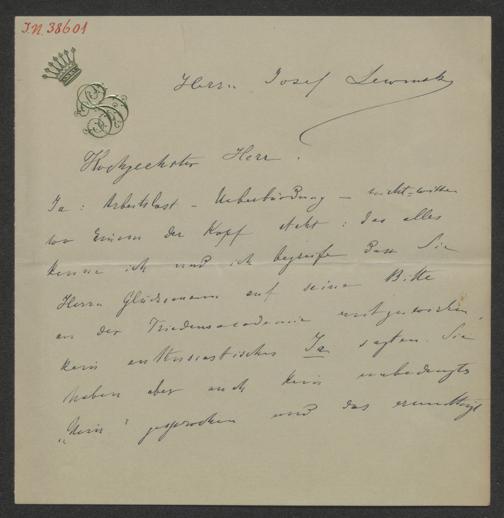 I.N. 38601
Herrn Josef Lewinsky
Hochgeehrter Herr.
Ja: Arbeitslast – Ueberbürdung – nicht-wissen
wo Einem der Kopf steht: das alles
kenne ich und ich begreife dass Sie
Herrn Glücksmann auf seine Bitte
an der Friedensacademie mitzuwirken,
kein enthusiastisches Ja sagten. Sie
haben aber auch kein unbedingtes
„Nein" gesprochen und das ermuthigt